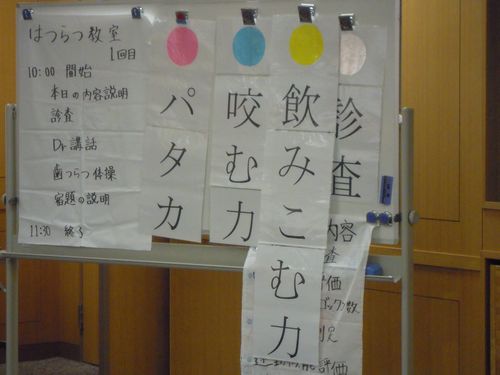 はつらつ教室
1回目
10:00 開始
本日の内容説明
診査
Dr講話
歯つらつ体操
宿題の説明
11:30 終了
パタカ
咬む力
飲みこむ力
診査
内容
査
評価
評価